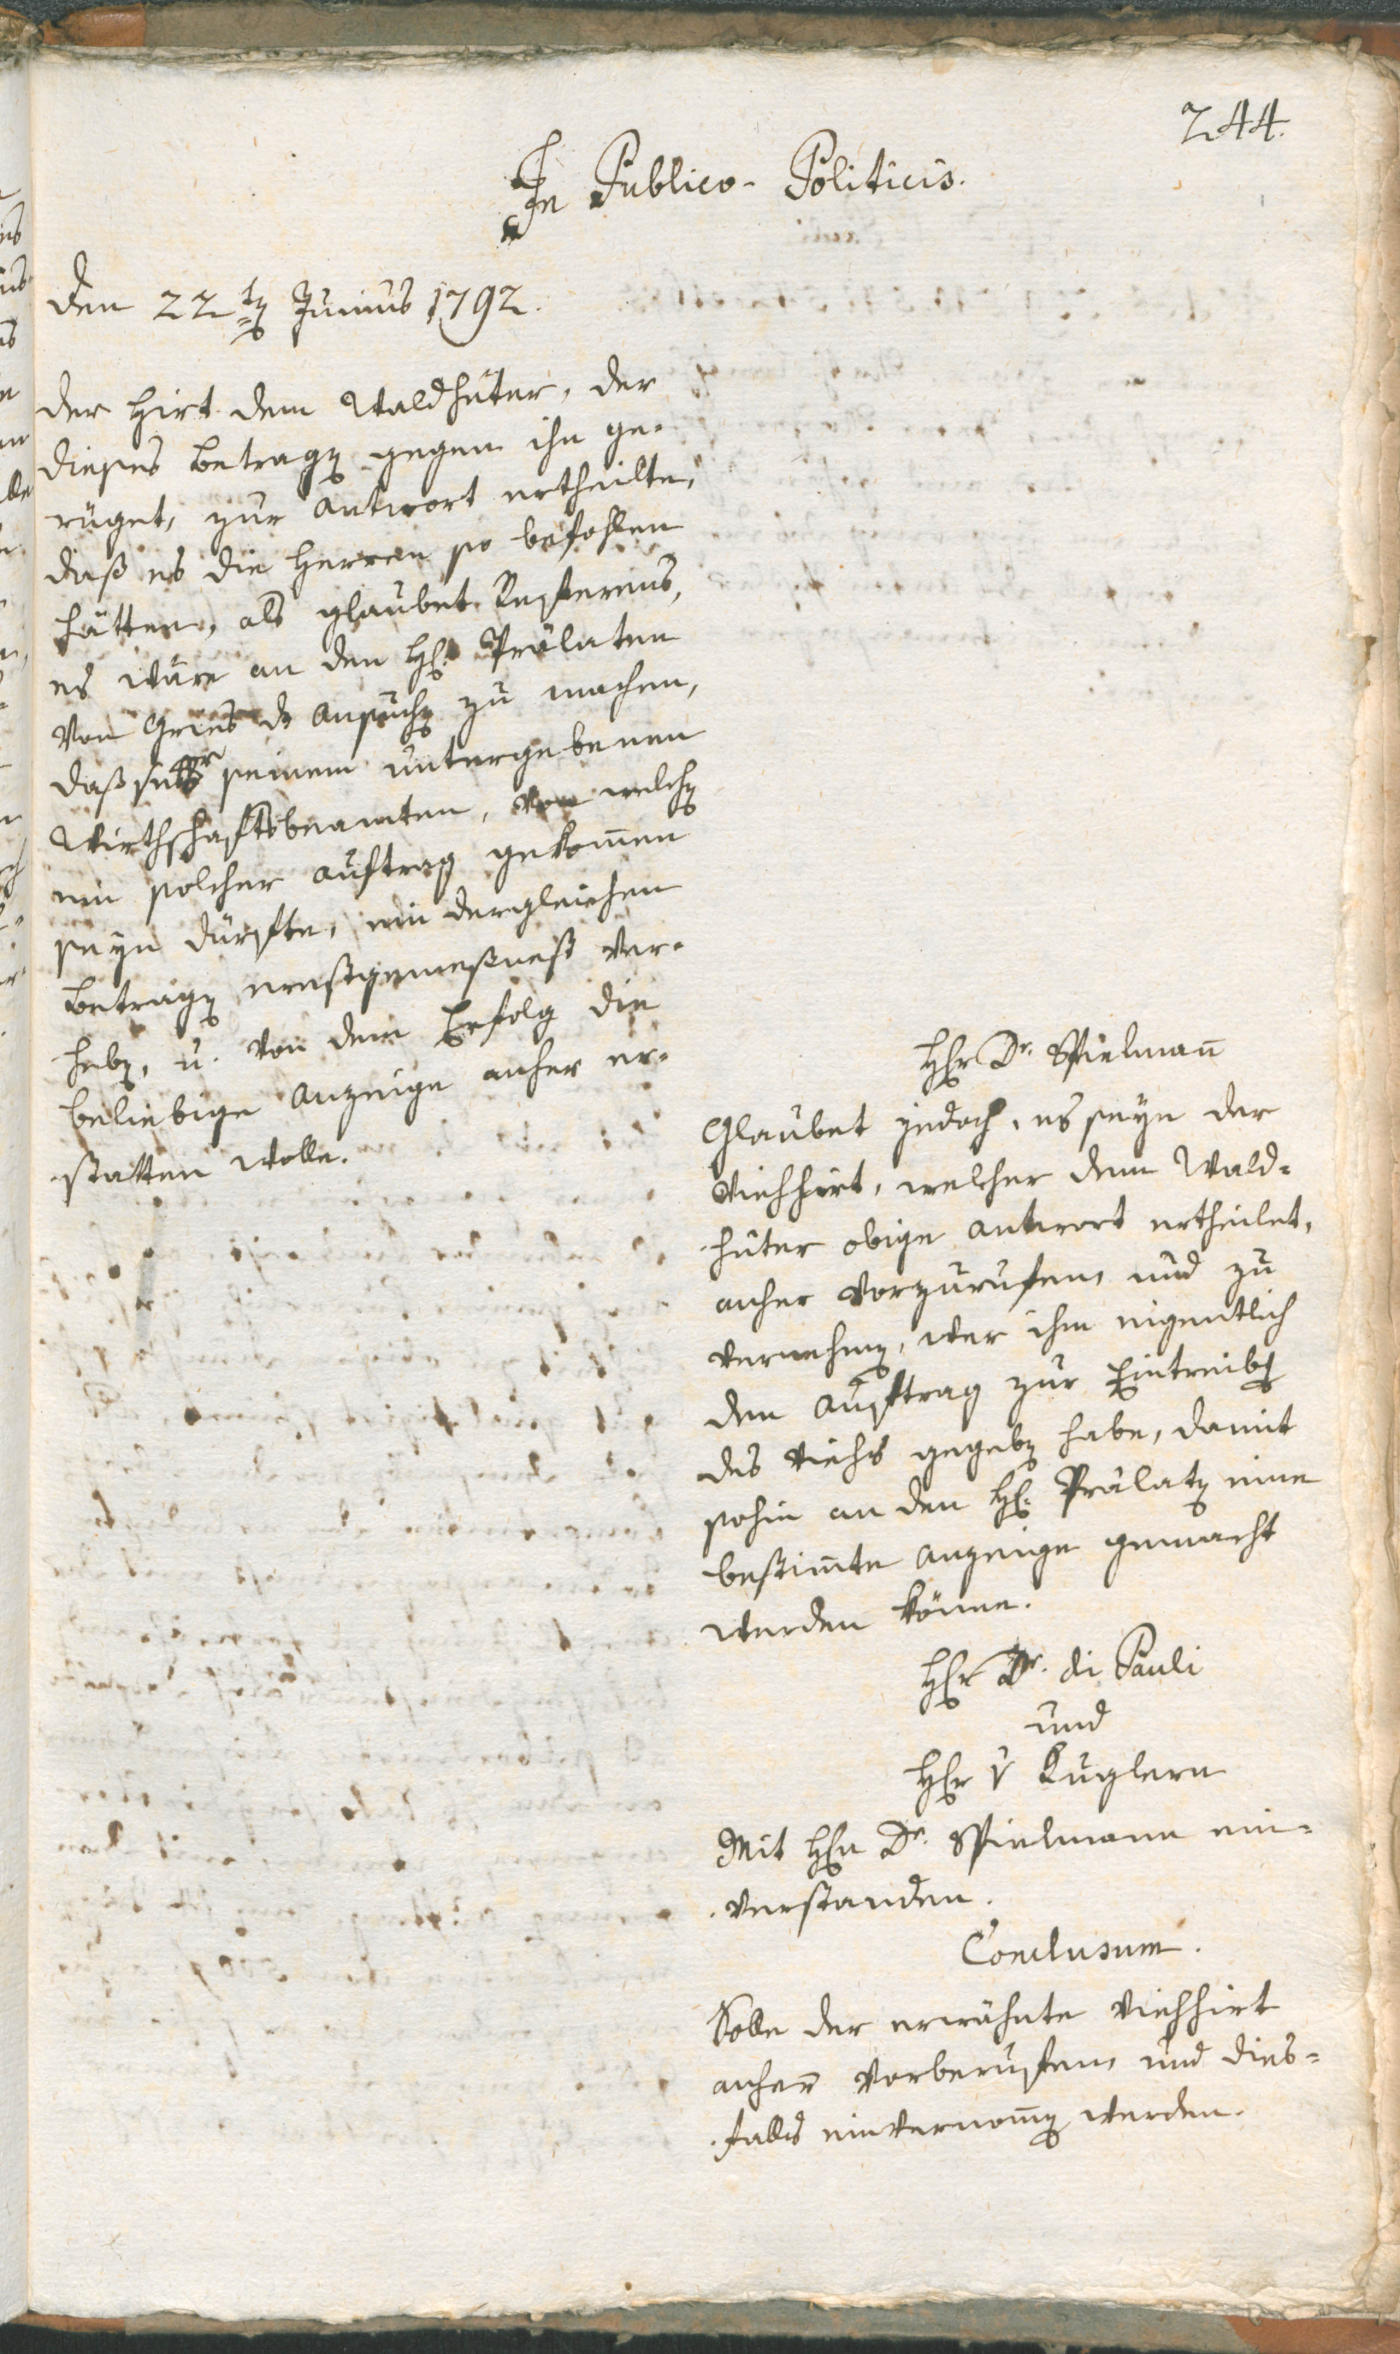 244.
In Publico-Politicis.
den 22ten Junius 1792.
der Hirt dem Waldhüter, der
dieses Betragen gegen ihn ge-
rüget, zur Antwort ertheilte,
daß es die Herren so befohlen
hätten, als glaubet Referens,
es wäre an den H: Prälaten
von Gries das Ansuchen zu machen,
daß selber seinem untergebenen
Wirthschaftsbeamten, von welchen
ein solcher Auftrag gekom̄en
seyn dürfte, ein dergleichen
Betragen ernstgemeßnest ver-
heben, u. von dem Erfolg die
beliebige Anzeige anher er-
statten wolle.
Hr Dr. Spielman̄
Glaubet jedoch, es seye der
Viehhirt, welcher dem Wald-
hüter obige Antwort ertheilet,
anher vorzurufen, und zu
vernehmen, wer ihm eigentlich
den Auftrag zur Eintreibung
des Viehs gegeben habe, damit
sohin an den H: Prälaten eine
bestim̄te Anzeige gemacht
werden könne.
Hr Dr. di Pauli
und
Hr v Kuglern
Mit Hrn Dr. Spielmann ein-
verstanden.
Conclusum.
Solle der erwähnte Viehhirt
anher vorberufen, und dies-
falls einvernom̄en werden.